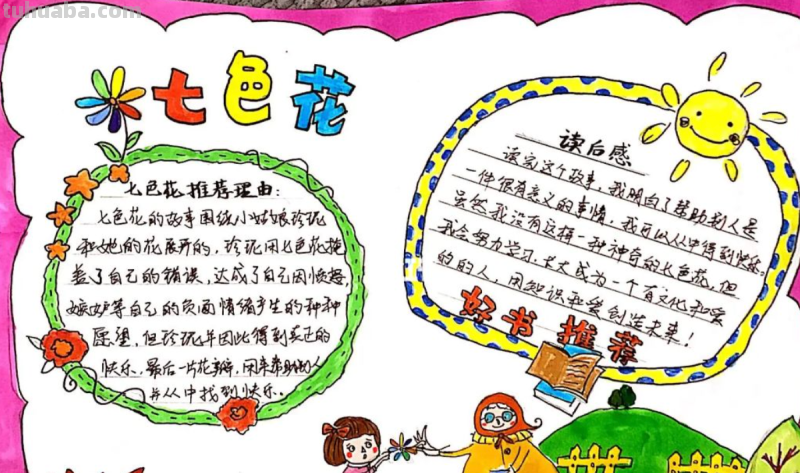 tuhuaba.com
七色花
七色花推荐理由:
七色花的故事围绕小姑娘珍妮
和她的花展开的,珍妮用七色花掩
盖了自己的错误,达成了自己因愤怒,
嫉妒等自己的负面情绪产生的种种
愿望,但珍妮并因此得到真正的
快乐,最后一片花瓣,用来帮助别人
并从中找到快乐。
读后感
读完这个故事,我明白了帮助别人是
一件很有意义的事情,我可以从中得到快乐。
虽然我没有这样一种神奇的七色花,但
我会努力学习,长大成为一个有文化和爱
的的人,用知识和爱创造未来!
好书推荐